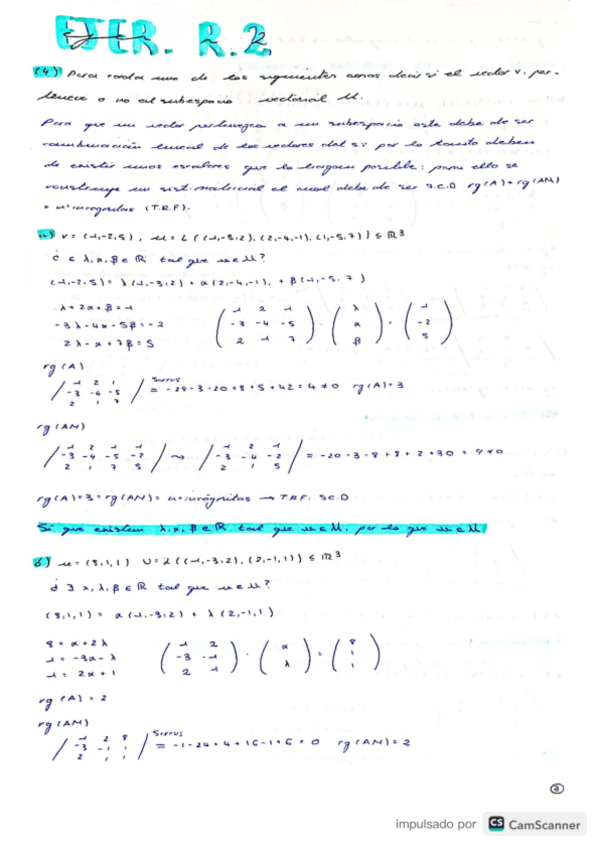 EJER. R.2
(4) Para cada uno de los siguientes casos decir si el vector v. per-
tenece o no al subespacio vectorial U.
Para que un vector pertenezca a un subespacio este debe de ser
combinación lineal de los vectores del s.v por lo tanto deben
de existir unos escalares que lo hagan posible; para ello se
construye un sist. matricial el cual debe de ser S.C.D rg(A) = rg(AM)
= nº incognitas (T.R.F).
a) v = (1,-2,5), u = L((1,-3,2), (2,-4,-1), (1,-5,7)) ≤ ℝ³
λ, α, β ∈ ℝ tal que
(1,-2,5) = λ(1,-3,2) + α(2,-4,-1), + β(1,-5,7)
λ + 2α + β = 1
-3λ - 4α - 5β = -2
2λ - α + 7β = 5
( 1 2 1 ) ( λ ) ( 1 )
( -3 -4 -5 ) · ( α ) = ( -2 )
( 2 -1 7 ) ( β ) ( 5 )
rg(A)
/ 1 2 1 / Sarrus
/ -3 -4 -5 / = -28 - 3 - 20 + 8 + 5 + 42 = 4 ≠ 0 rg(A) = 3
/ 2 1 7 /
rg(AM)
/ 1 2 1 1 / / 1 2 1 /
/ -3 -4 -5 -2 / → / -3 -4 -2 / = -20 - 3 - 8 + 8 + 2 + 30 = 9 ≠ 0
/ 2 1 7 5 / / 2 1 5 /
rg(A) = 3 = rg(AM) = nº incógnitas → TRF: SC.D
Si que existen λ, α, β ∈ ℝ tal que u ∈ U, por lo que u ∈ U
b) u = (8,1,1) U = L((1,-3,2), (2,-1,1)) ≤ ℝ³
¿∃ α, λ, β ∈ ℝ tal que u ∈ U?
(8,1,1) = α(1,-3,2) + λ(2,-1,1)
8 = α + 2λ
1 = -3α - λ
1 = 2α + 1
( 1 2 ) ( α ) ( 8 )
( -3 -1 ) · ( λ ) = ( 1 )
( 2 1 ) ( 1 )
rg(A) = 2
rg(AM)
/ 1 2 8 / Sarrus
/ -3 -1 1 / = -1 - 24 + 4 + 16 - 1 + 6 = 0 rg(AM) = 2
/ 2 1 1 /
impulsado por CS CamScanner